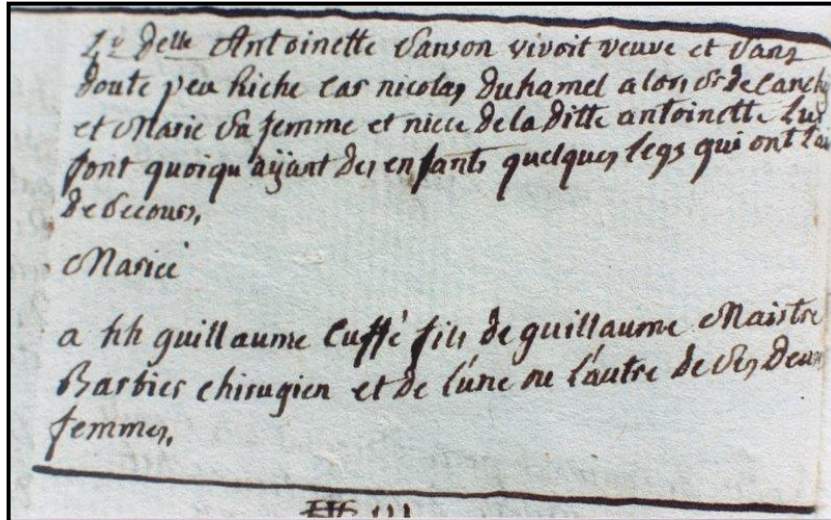 Lad delle Antoinette Sanson vivoit veuve et sans
doute peu Riche car nicolas duhamel alors Sr de canchy
et Marie sa femme et niece de la ditte antoinette Luy
font quoiqu aÿant des enfants quelques legs qui ont l'air
de secours,
Mariée
a hh guillaume Cuffé fils de guillaume Maistre
Barbier chirugien et de l'une ou l'autre de ses deux
femmes,